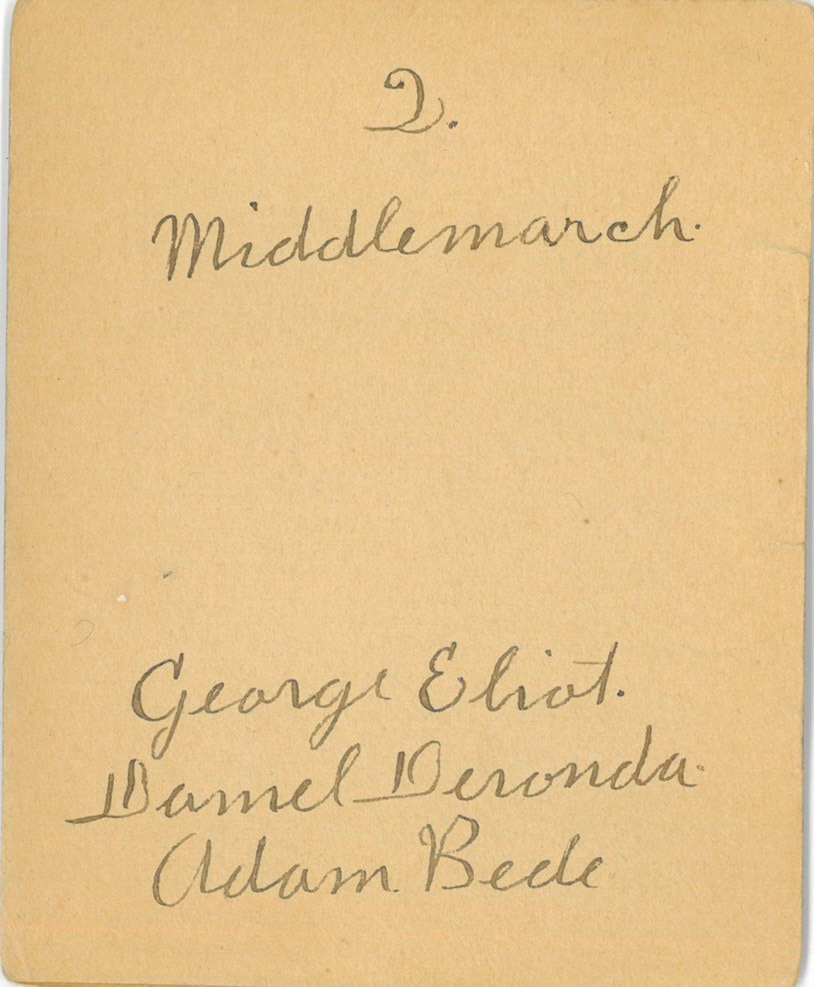 2.
Middlemarch.
George Eliot.
Daniel Deronda.
Adam Bede